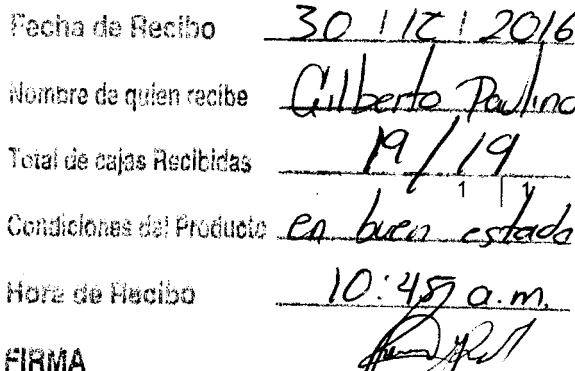 Fecha de Recibo 30 / 12 / 2016
Nombre de quien recibe Gilberto Paulino
Total de cajas Recibidas 19 / 19
1 1
Condiciones del Producto en buen estado
Hora de Recibo 10:45 a.m.
FIRMA